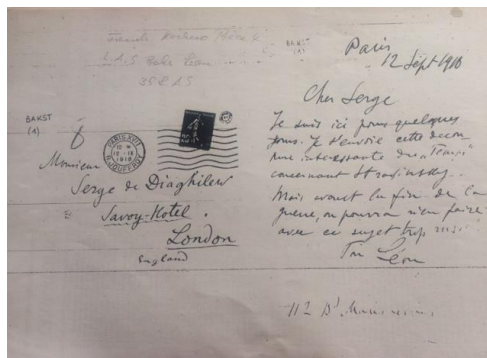 BAKST
(1)
PARIS XVII
R. JOUFFROY
1918
Monsieur
Serge de Diaghilew
Savoy-Hotel.
London
England
BAKST
(1)
Paris
12 Sept 1918
Cher Serge
Je suis ici pour quelques
jours. Je t'envoie cette
interessante du "Temps"
concernant Strawinsky.
Mais avant la fin de la
guerre, on pourra rien faire
avec ce sujet trop
Ton Léon
112 Bd